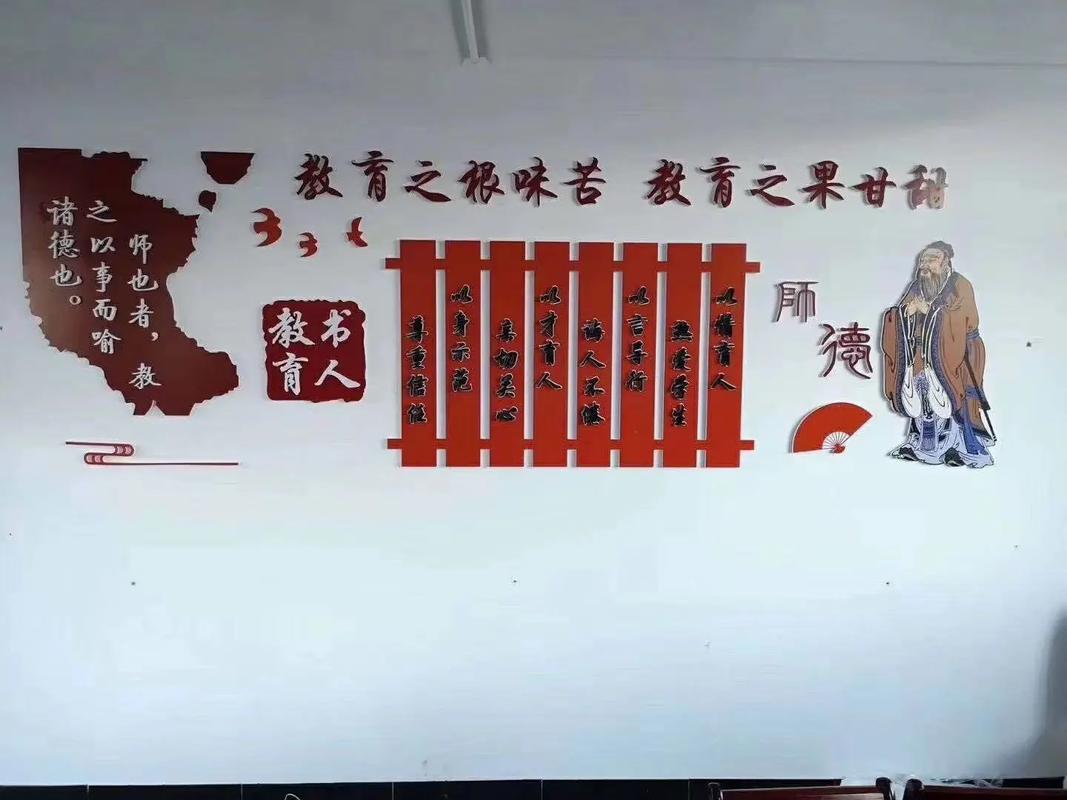 教育之根味苦 教育之果甘甜
师也者，教
之以事而喻
诸德也。
教书
育人
以情育人
热爱学生
以言导行
诲人不倦
以才育人
真切关心
以身示范
尊重信任
師
德